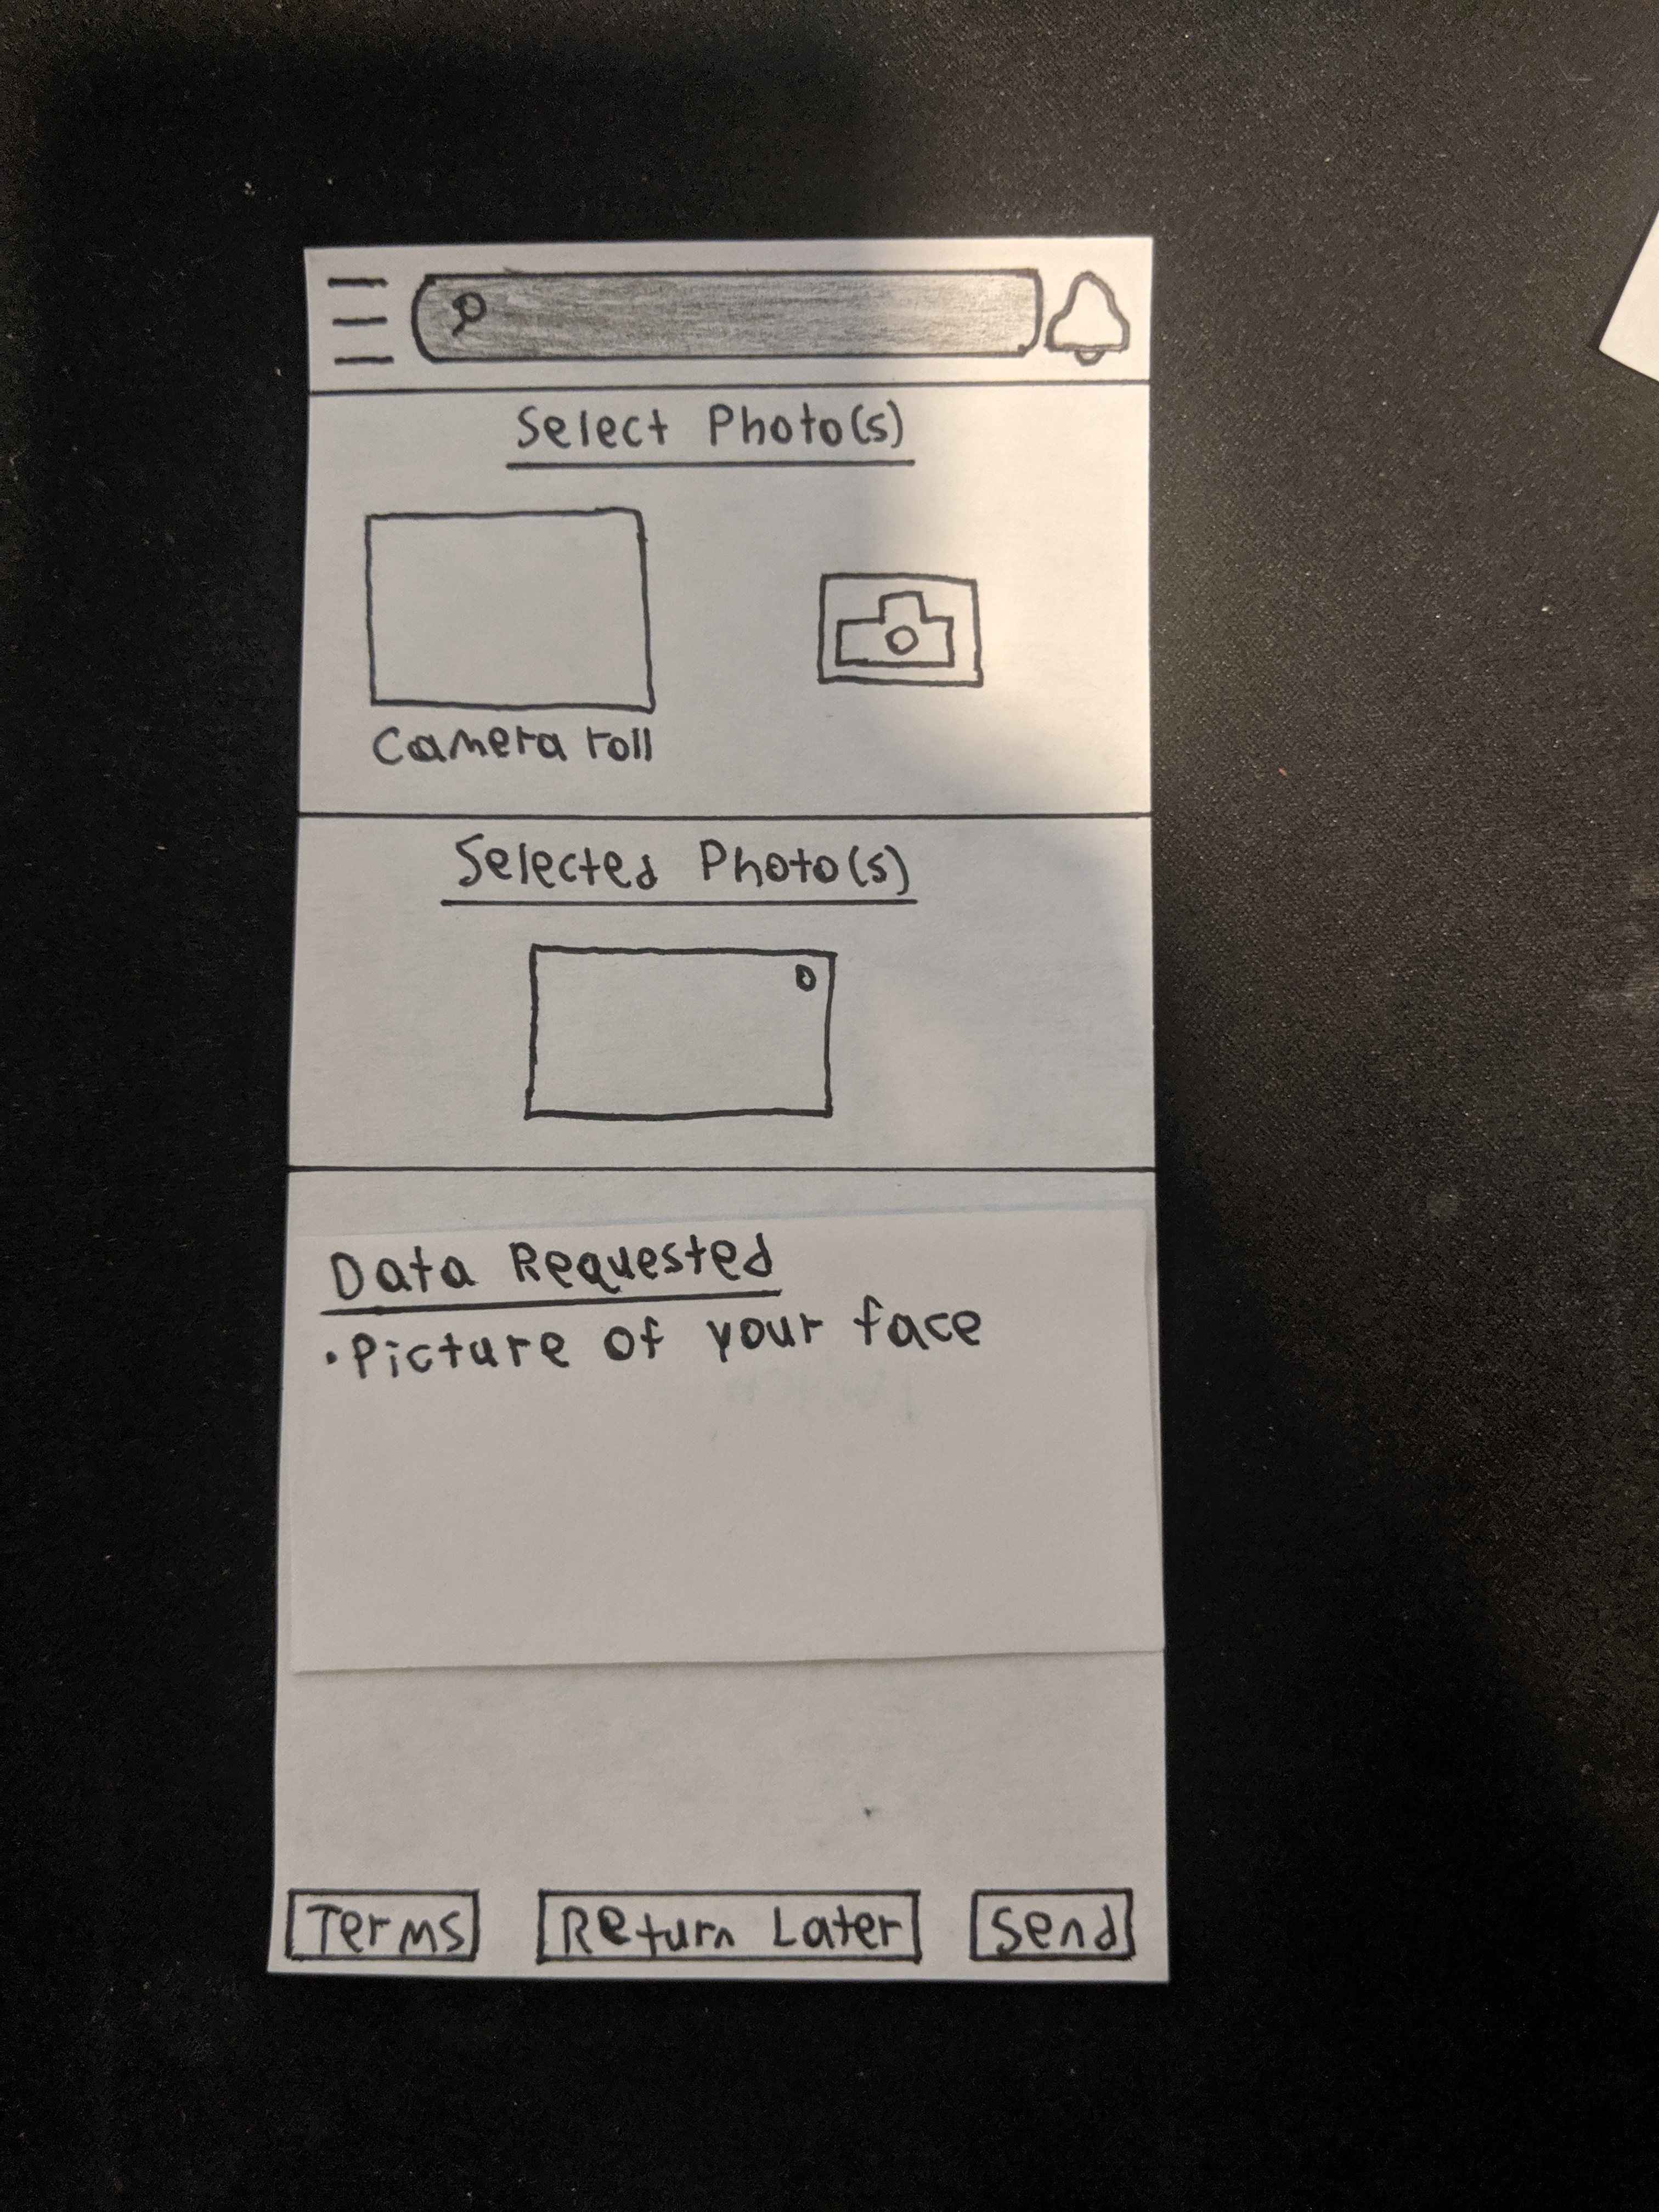 Select Photo(s)
Camera roll
Selected Photo(s)
Data Requested
• Picture of your face
Terms
Return Later
Send